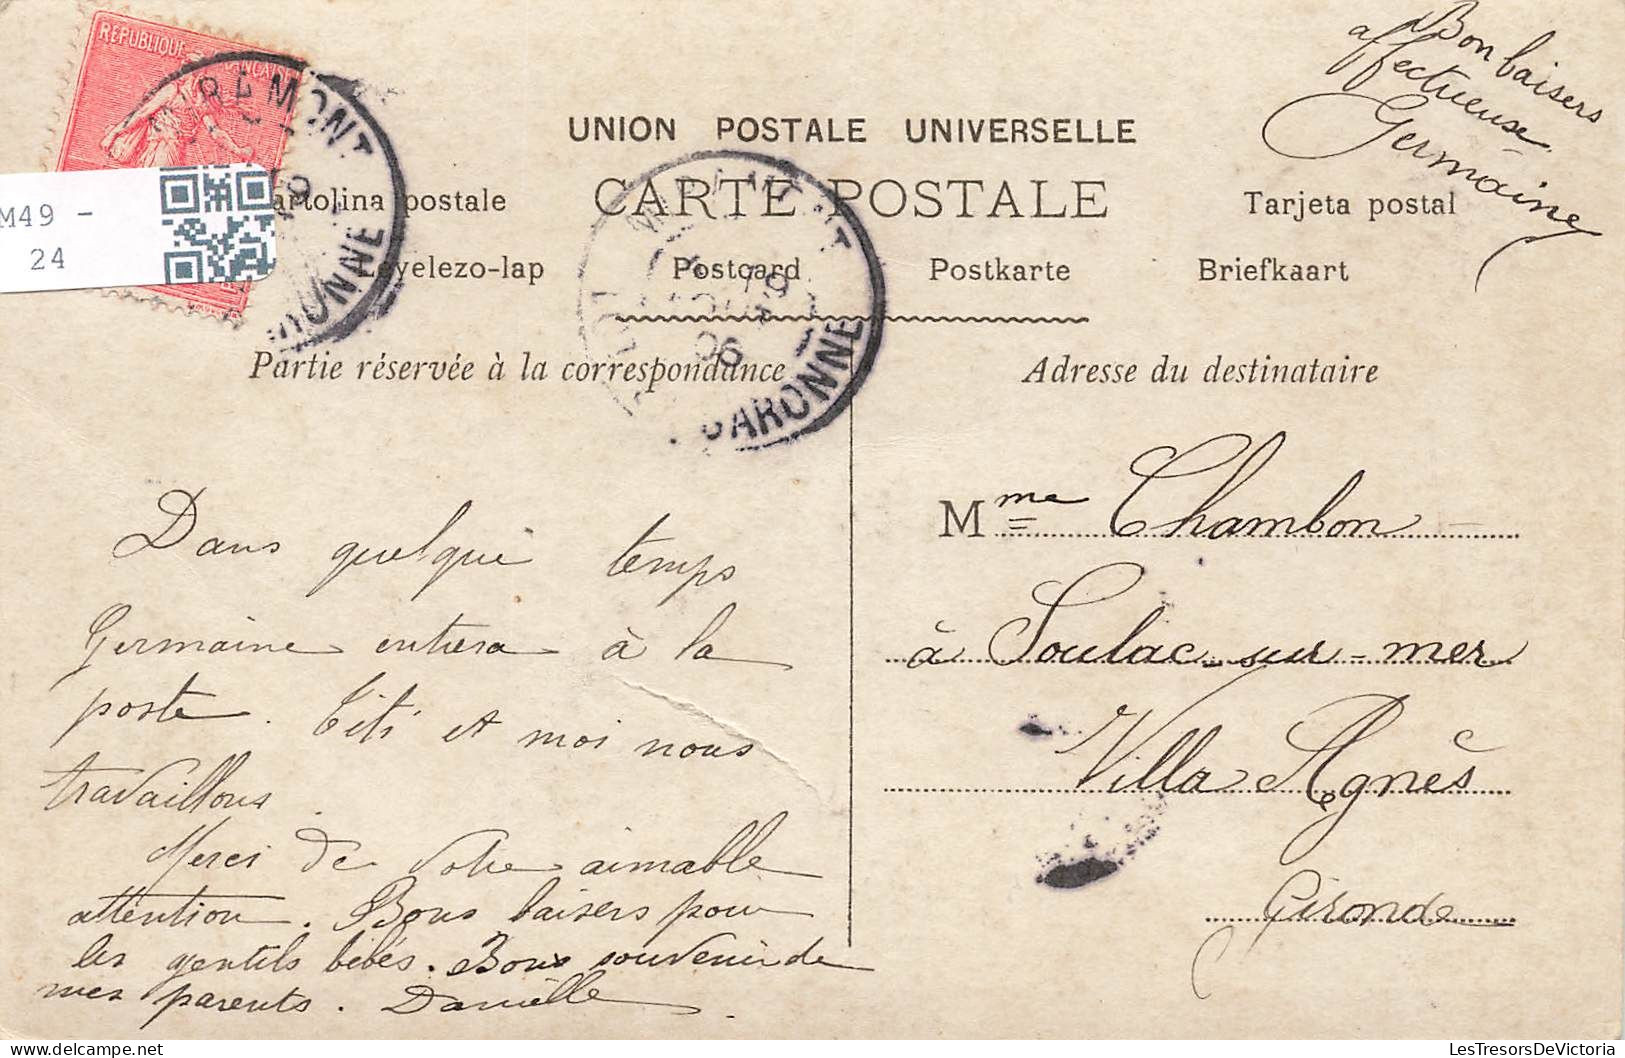 RÉPUBLIQUE FRANÇAISE
M49 -
24
Bon baisers
affectueuse
Germaine
UNION POSTALE UNIVERSELLE
CARTE POSTALE
artolina postale
Tarjeta postal
Levelezo-lap
Postcard
Postkarte
Briefkaart
GARONNE
06
GARONNE
Partie réservée à la correspondance
Adresse du destinataire
Dans quelque temps
Germaine entrera à la
poste. Titi et moi nous
travaillons.
Merci de votre aimable
attention. Bons baisers pour
les gentils bébés. Bons souvenir de
mes parents. Danielle
Mme Chambon
à Soulac-sur-mer
Villa Agnès
Gironde
LesTresorsDeVictoria